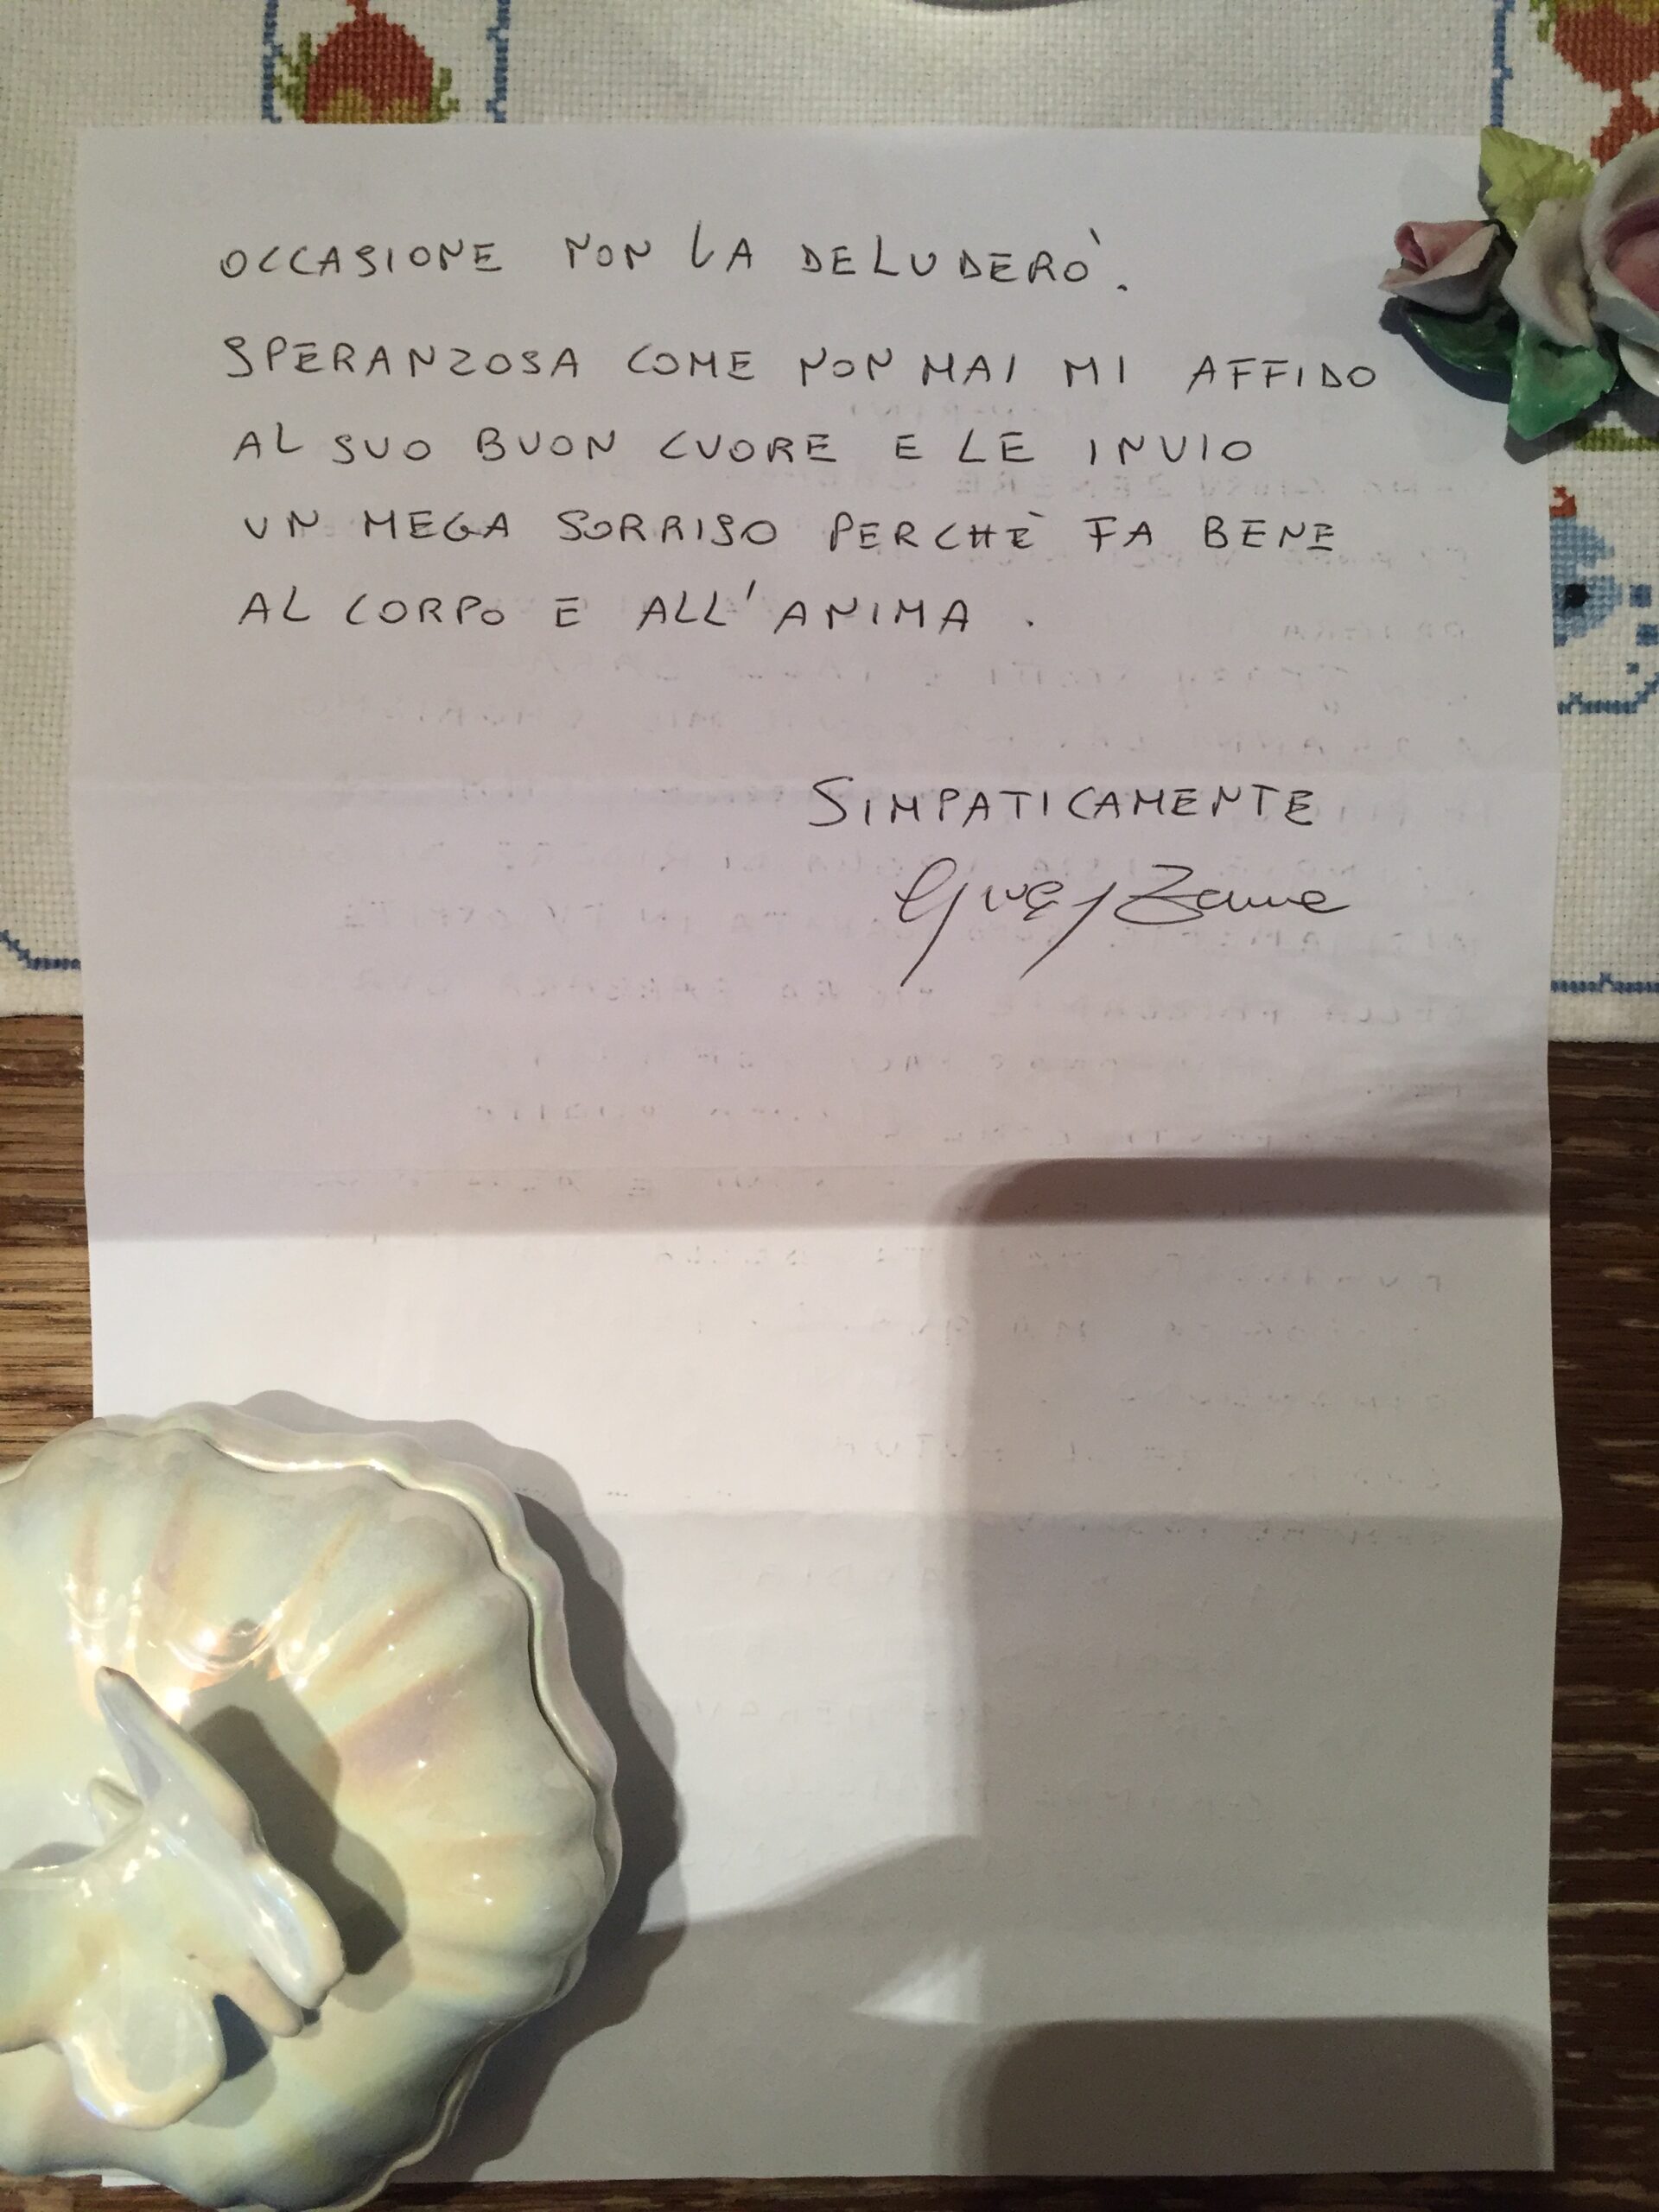 OCCASIONE NON LA DELUDERÒ.
SPERANZOSA COME NON MAI MI AFFIDO
AL SUO BUON CUORE E LE INVIO
UN MEGA SORRISO PERCHÈ FA BENE
AL CORPO E ALL'ANIMA .
SIMPATICAMENTE